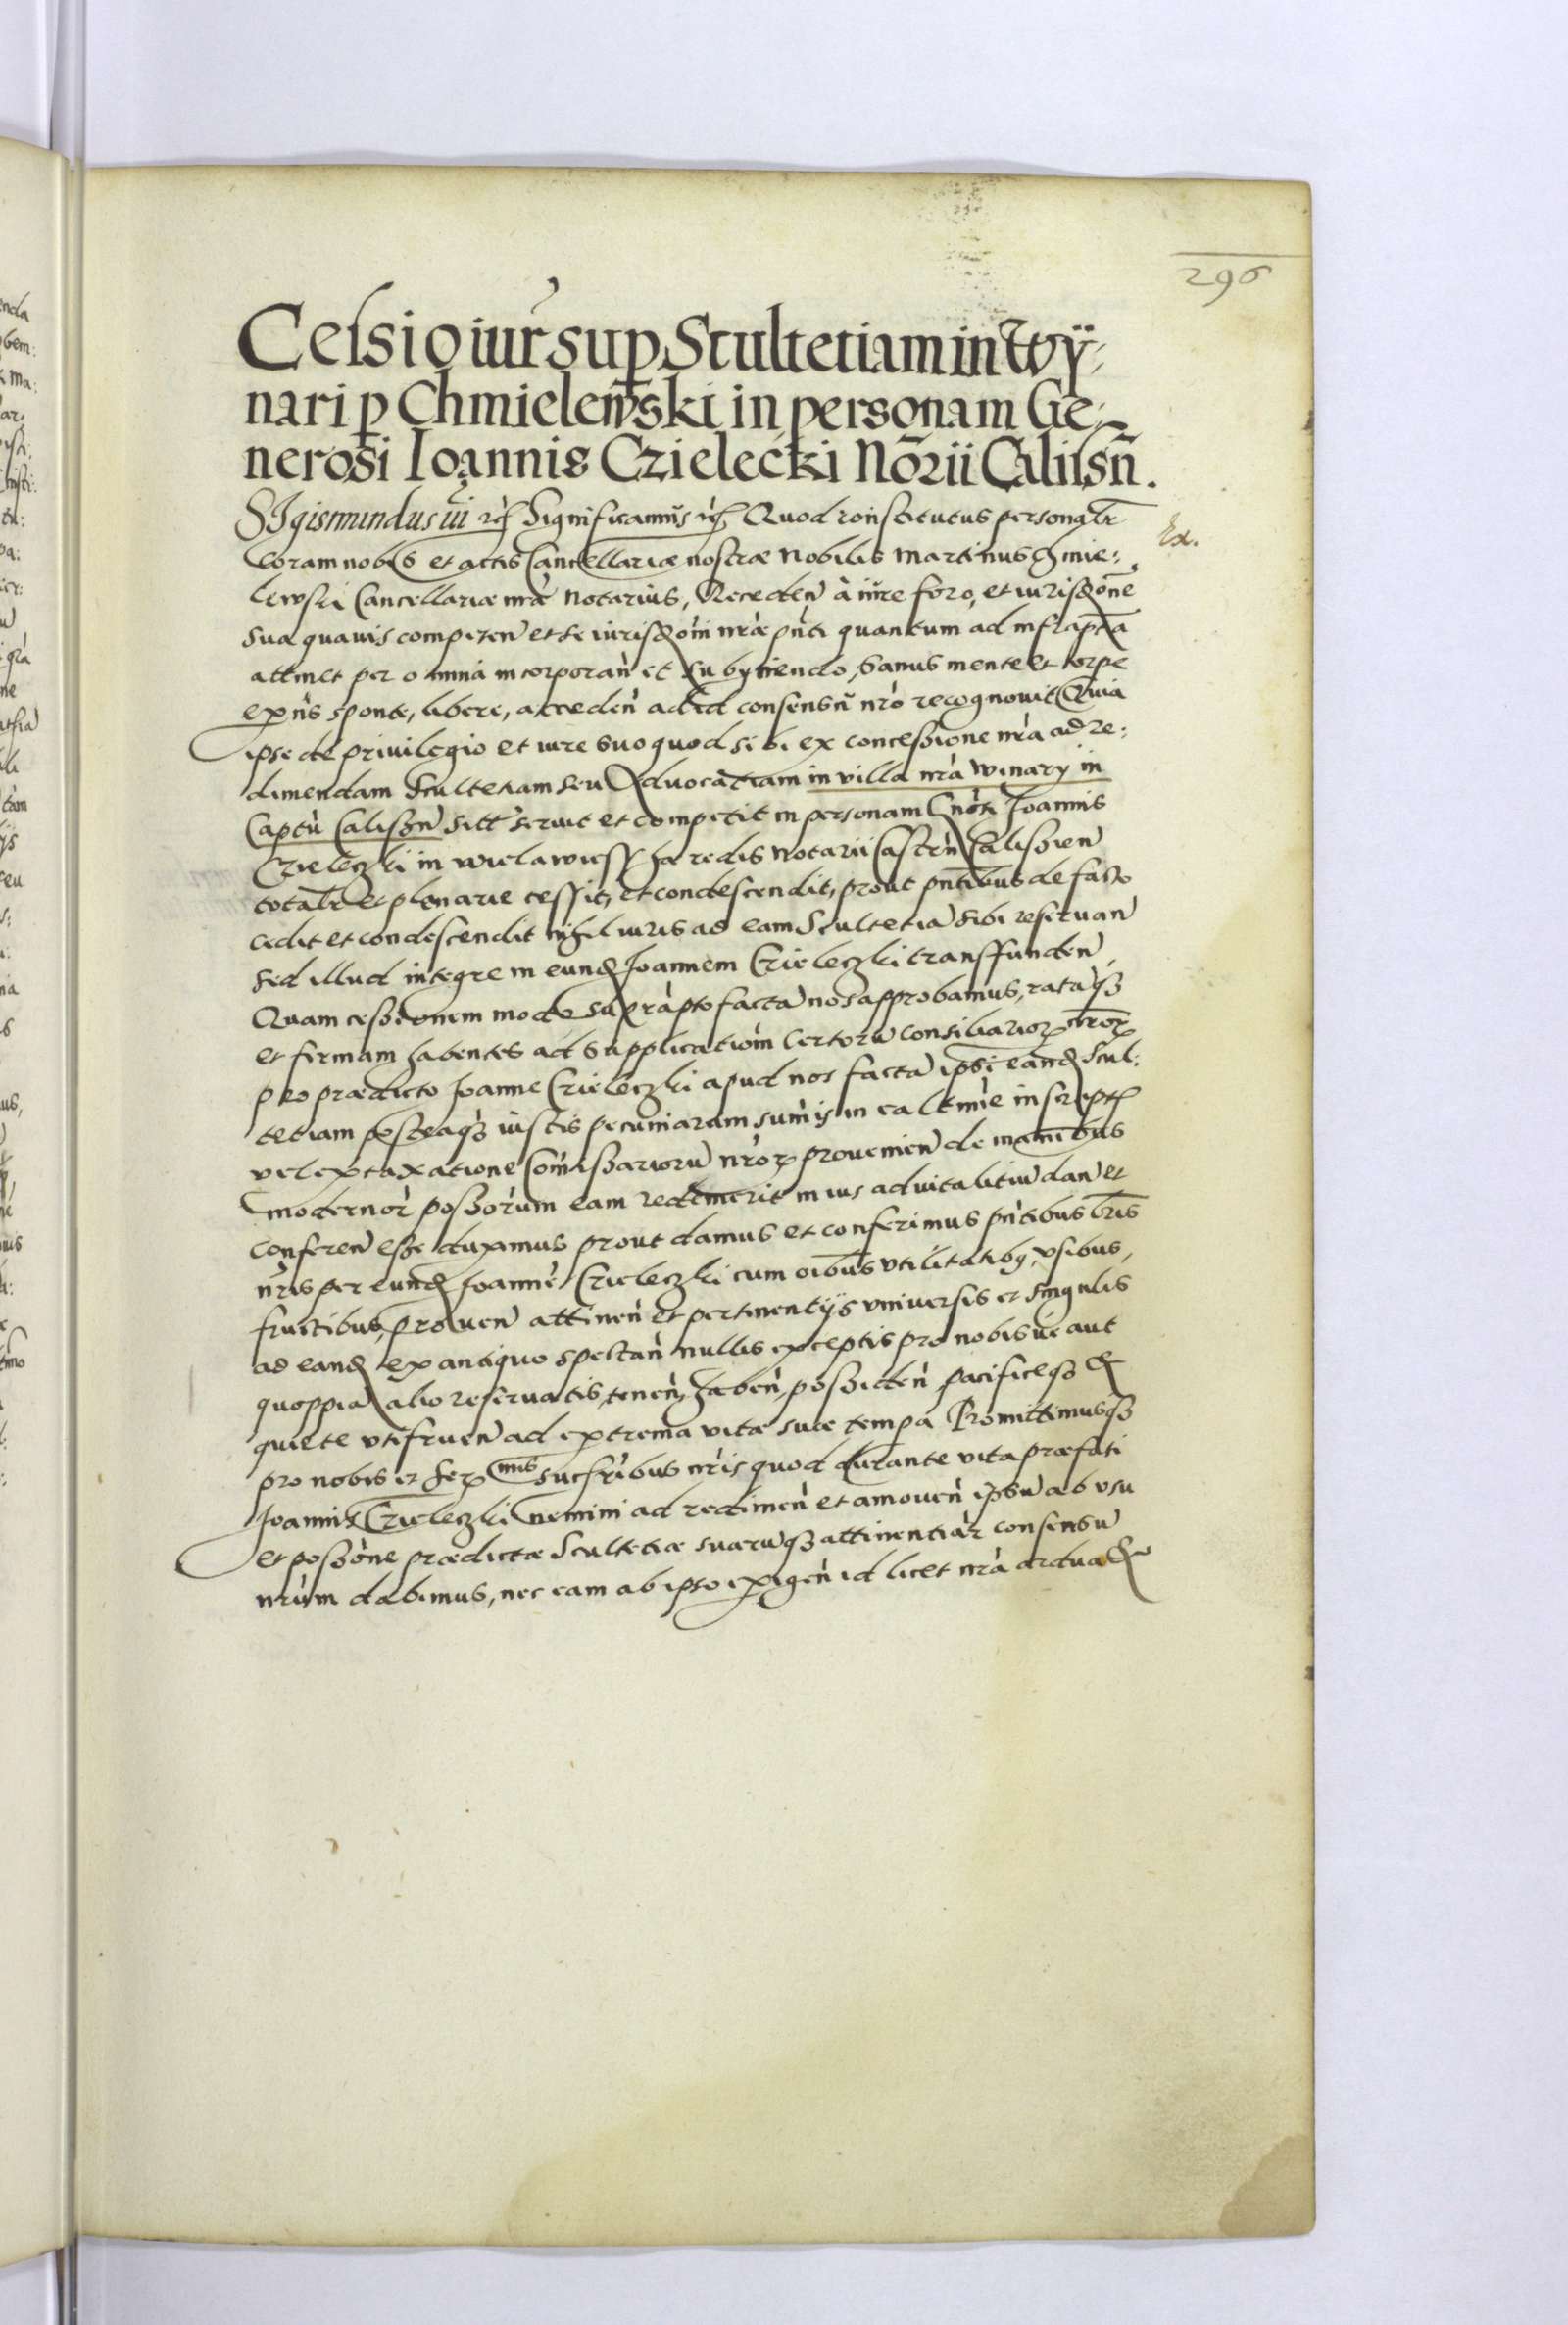 296
Cessio iur̃ sup Scultetiam in Wÿ⸗
nari p Chmielewski in personam Ge⸗
nerosi Ioannis Czielecki Nõrii Calissñ.
SIgismundus iii etc̃ Significamus etc̃ Quod constitutus personalr̃
Ex.
Coram nobis et actis Cancellariæ nostræ Nobilis Martinus Chmie:
lewski Cancellariæ nr̃æ Notarius, Receden̄ à iure foro, et iurisdõne
sua quauis competen̄ et se iurisdõni nr̃æ pñti quantum ad infraptã
attinet per omnia incorporan̄ et subyciendo, sanus mente et corpe
exñs sponte, libere, acceden̄ ad id consensu nr̃o recognouit Quia
ipse de priuilegio et iure suo quod sibi ex concessione nr̃a ad re:
dimendam Scultetiam seu Aduocatiam in villa nr̃a Winary in
Captũ Calissn̄ sitt seruit et competit in personam Gnõsi Joannis
Czieleczki in Wielawiess hæredis Notarii Castrn̄ Calissien̄
totalr̃ et plenarie cessit, et condescendit, prout pñtibus de facto
cedit et condescendit nihil iuris ad eam Scultetiã sibi reseruan̄
sed illud integre in eund̃ Joannem Czieleczki transffunden̄
Quam cessionem modo supràpto factã nos approbamus, ratãqȝ
et firmam habentes ad supplicatiom̃ Certorũ consiliarioꝝ nr̃oꝝ
pro prædicto Joanne Czieleczki apud nos factã ipsi eand̃ Scul:
tetiam posteaqȝ iustis pecuniarum sum̃is in ea ltim̃e inscriptis
vel ex taxatione Com̃issariorũ nr̃oꝝ prouenien̄ de manibus
modernor̃ possorum eam redemerit in ius aduitalitiũ dan̄ et
conferen̄ esse duximus prout damus et conferimus pñtibus lr̃is
nr̃is per eund̃ Joannẽ Czieleczki cum oĩbus vtilitatibq, vsibus,
fructibus, prouen̄ attinen̄ et pertinentÿs vniuersis et singulis
ad eand̃ ex antiquo spectan̄ nullis exceptis pro nobisue aut
quoppiã alio reseruatis, tenen̄, haben̄, possiden̄ pacificeqȝ et
quiete vtifruen̄ ad extrema vitæ suæ tempa Promittimusqȝ
pro nobis et Serꝝ mis sucsrĩbus nr̃is quod durante vita præfati
Joannis Czieleczki nemini ad redimen̄ et amouen̄ ipsũ ab vsu
et possõne prædictæ Scultetiæ suarũqȝ attinentiar̃ consensũ
nr̃um dabimus, nec eam ab ipso exigen̄ id licet nr̃a ardua et